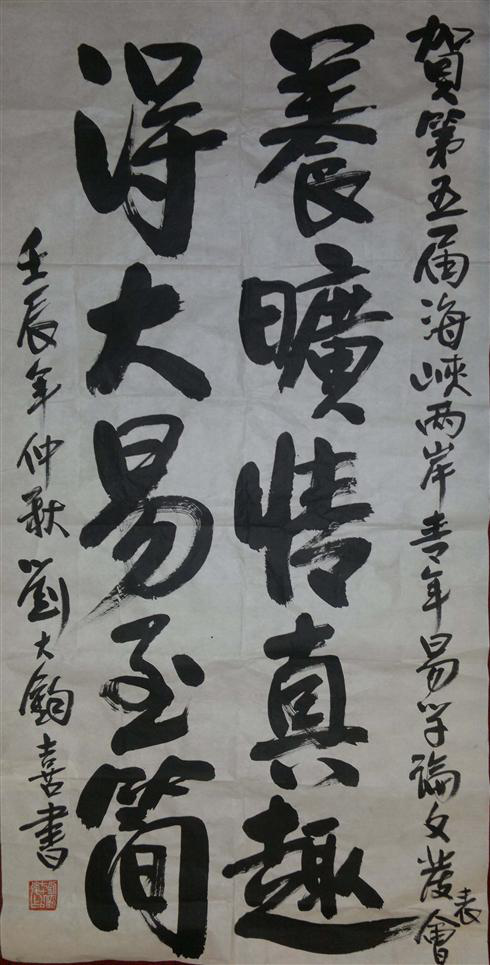 賀第五届海峽兩岸青年易学論文發表會
養曠情真趣
得大易至簡
壬辰年仲秋劉大鈞喜書